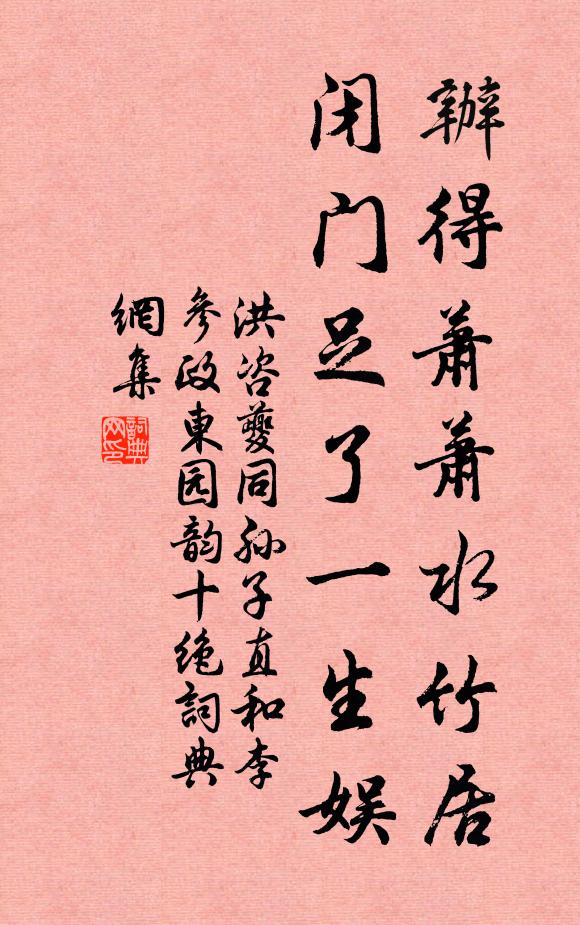 辦得蕭蕭水竹居
闭门足了一生娱
洪咨夔同孙子直和李
參政東园韵十绝詞典
網集
詞典
网印